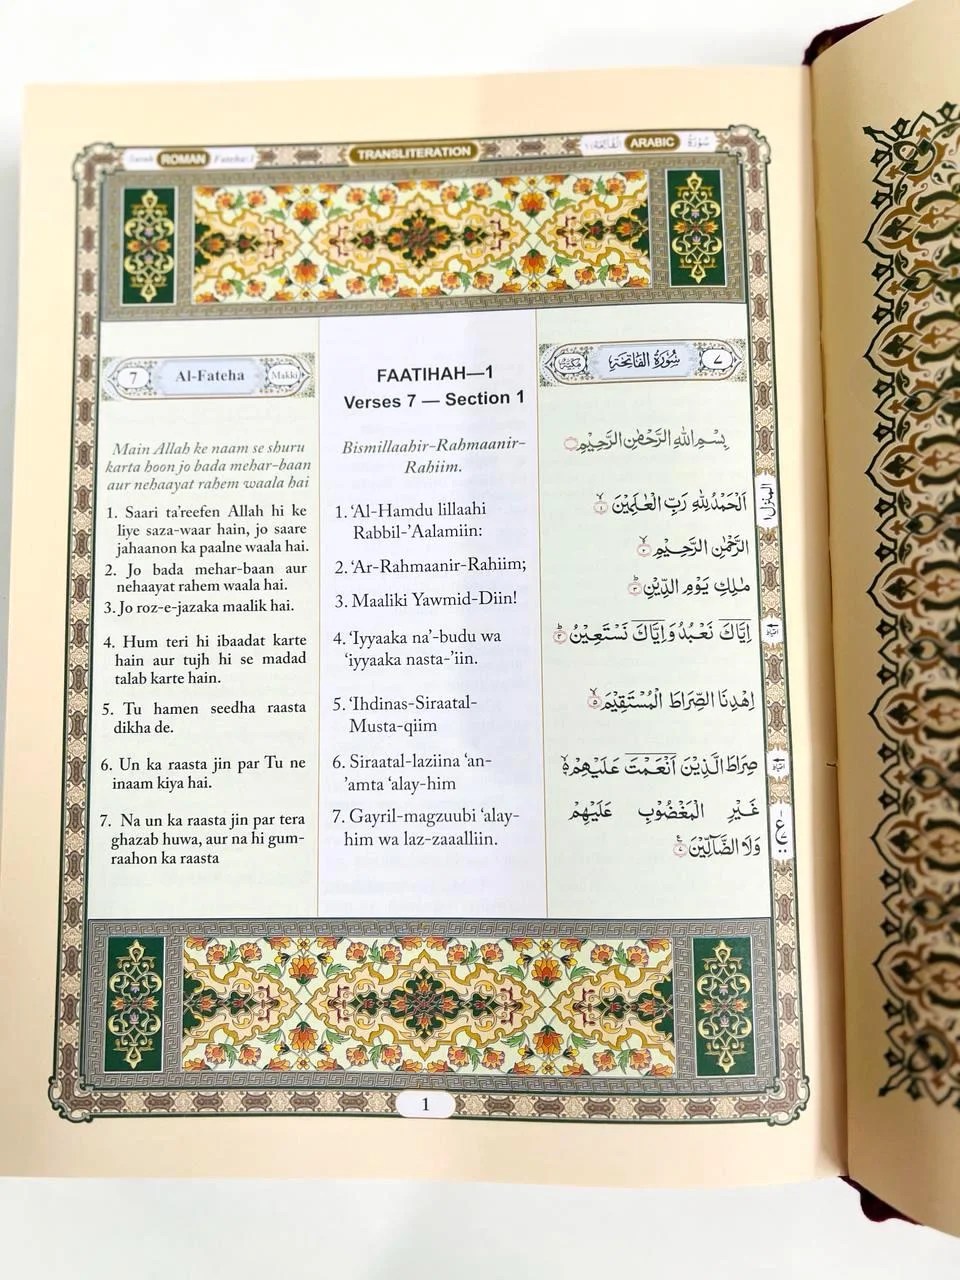 Surah ROMAN Fateha:1
TRANSLITERATION
الفاتحة ١ ARABIC سُورَةُ
7 Al-Fateha Makki
Main Allah ke naam se shuru
karta hoon jo bada mehar-baan
aur nehaayat rahem waala hai
1. Saari ta'reefen Allah hi ke
liye saza-waar hain, jo saare
jahaanon ka paalne waala hai.
2. Jo bada mehar-baan aur
nehaayat rahem waala hai.
3. Jo roz-e-jazaka maalik hai.
4. Hum teri hi ibaadat karte
hain aur tujh hi se madad
talab karte hain.
5. Tu hamen seedha raasta
dikha de.
6. Un ka raasta jin par Tu ne
inaam kiya hai.
7. Na un ka raasta jin par tera
ghazab huwa, aur na hi gum-
raahon ka raasta
FAATIHAH—1
Verses 7 — Section 1
Bismillaahir-Rahmaanir-
Rahiim.
1. ‘Al-Hamdu lillaahi
Rabbil-’Aalamiin:
2. ‘Ar-Rahmaanir-Rahiim;
3. Maaliki Yawmid-Diin!
4. ‘Iyyaaka na’-budu wa
‘iyyaaka nasta-’iin.
5. ‘Ihdinas-Siraatal-
Musta-qiim
6. Siraatal-laziina ‘an-
’amta ‘alay-him
7. Gayril-magzuubi ‘alay-
him wa laz-zaaalliin.
٧ سُوْرَةُ الْفَاتِحَةِ مَكِّيَّةٌ
بِسْمِ اللهِ الرَّحْمٰنِ الرَّحِيْمِ
اَلْحَمْدُ لِلّٰهِ رَبِّ الْعٰلَمِيْنَ ۙ۱
الرَّحْمٰنِ الرَّحِيْمِ ۙ۲
مٰلِكِ يَوْمِ الدِّيْنِ ؕ۳
اِيَّاكَ نَعْبُدُ وَاِيَّاكَ نَسْتَعِيْنُ ؕ۴
اِهْدِنَا الصِّرَاطَ الْمُسْتَقِيْمَ ۙ۵
صِرَاطَ الَّذِيْنَ اَنْعَمْتَ عَلَيْهِمْ ۙ۶
غَيْرِ الْمَغْضُوْبِ عَلَيْهِمْ
وَلَا الضَّآلِّيْنَ ۷
المنزل ١
ع
1